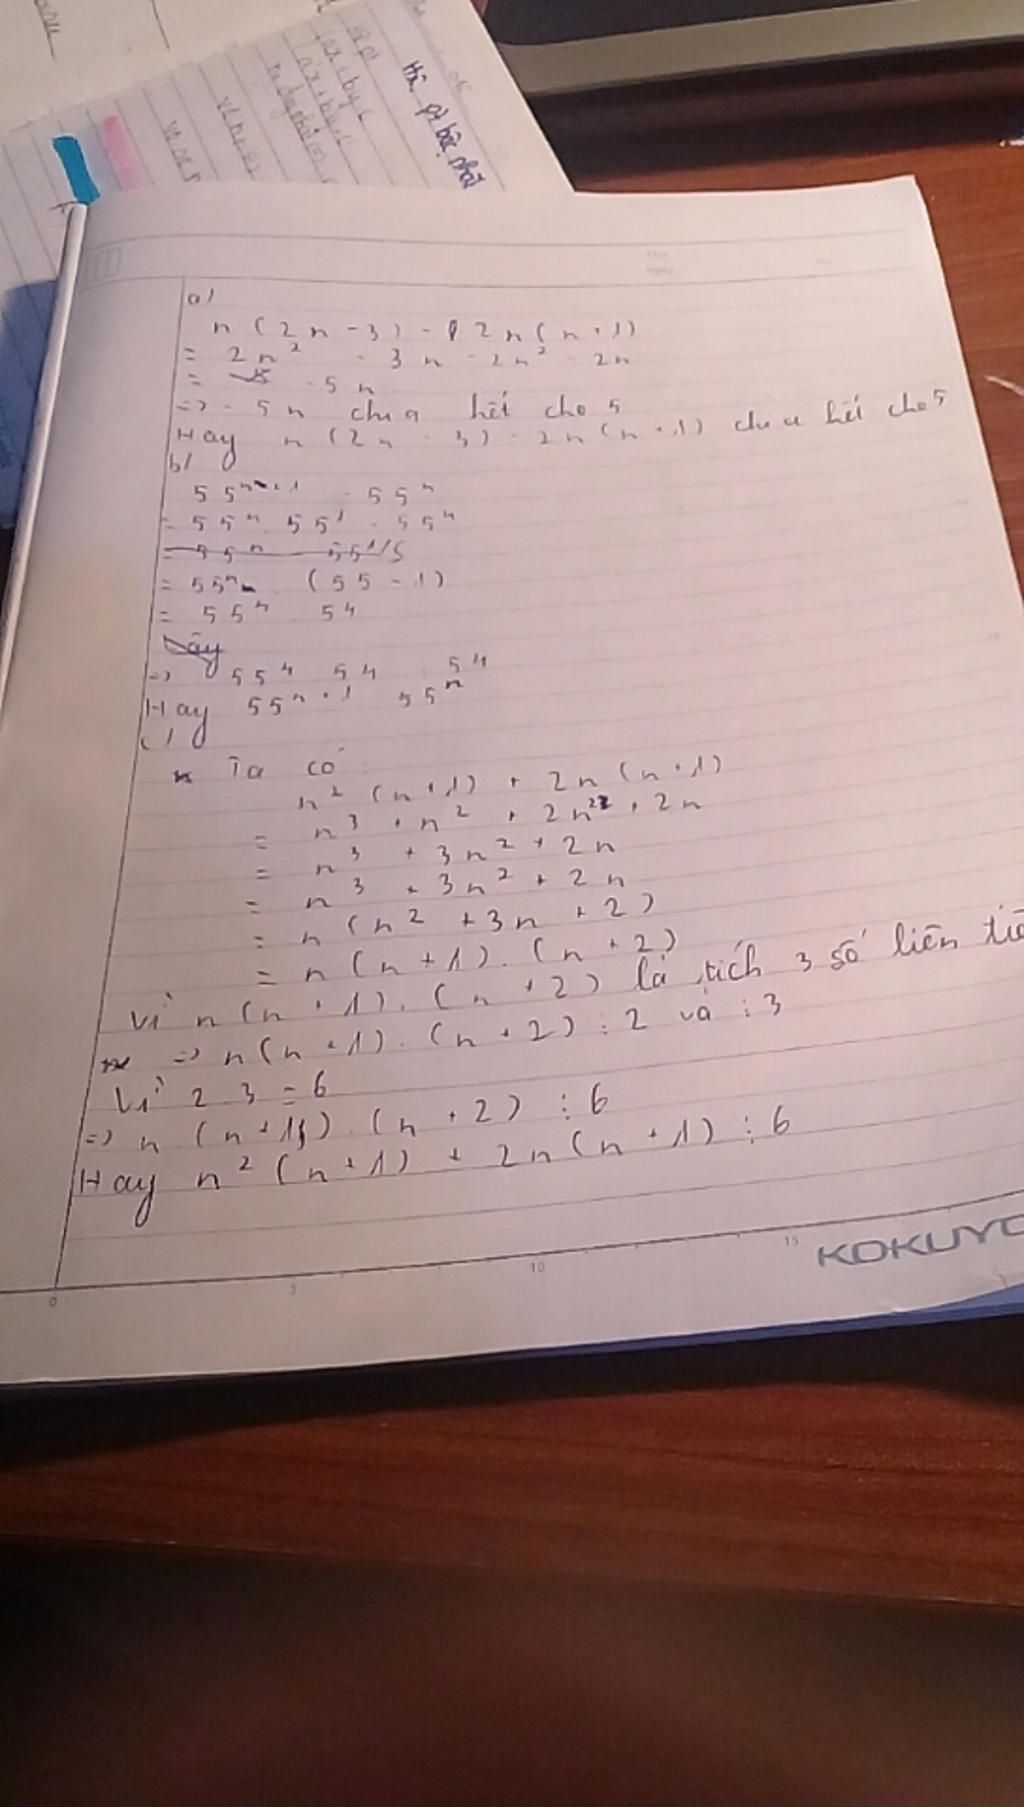 Hệ pt bậc nhất
a)
n (2n - 3) - 2n (n + 1)
= 2n² - 3n - 2n² - 2n
= - 5n
=> - 5n chia hết cho 5
Hay n (2n - 3) - 2n (n + 1) chia hết cho 5
b)
55ⁿ⁺¹ - 55ⁿ
= 55ⁿ . 55¹ - 55ⁿ
= 55ⁿ . (55 - 1)
= 55ⁿ . 54
=> 55ⁿ . 54 ⋮ 54
Hay 55ⁿ⁺¹ - 55ⁿ
c)
Ta có :
n² (n + 1) + 2n (n + 1)
= n³ + n² + 2n² + 2n
= n³ + 3n² + 2n
= n³ + 3n² + 2n
= n (n² + 3n + 2)
= n (n + 1) . (n + 2)
Vì n (n + 1) . (n + 2) là tích 3 số liên
=> n (n + 1) . (n + 2) ⋮ 2 và ⋮ 3
Vì 2 . 3 = 6
=> n (n + 1) . (n + 2) ⋮ 6
Hay n² (n + 1) + 2n (n + 1) ⋮ 6
0 5 10 15
KOKUYO